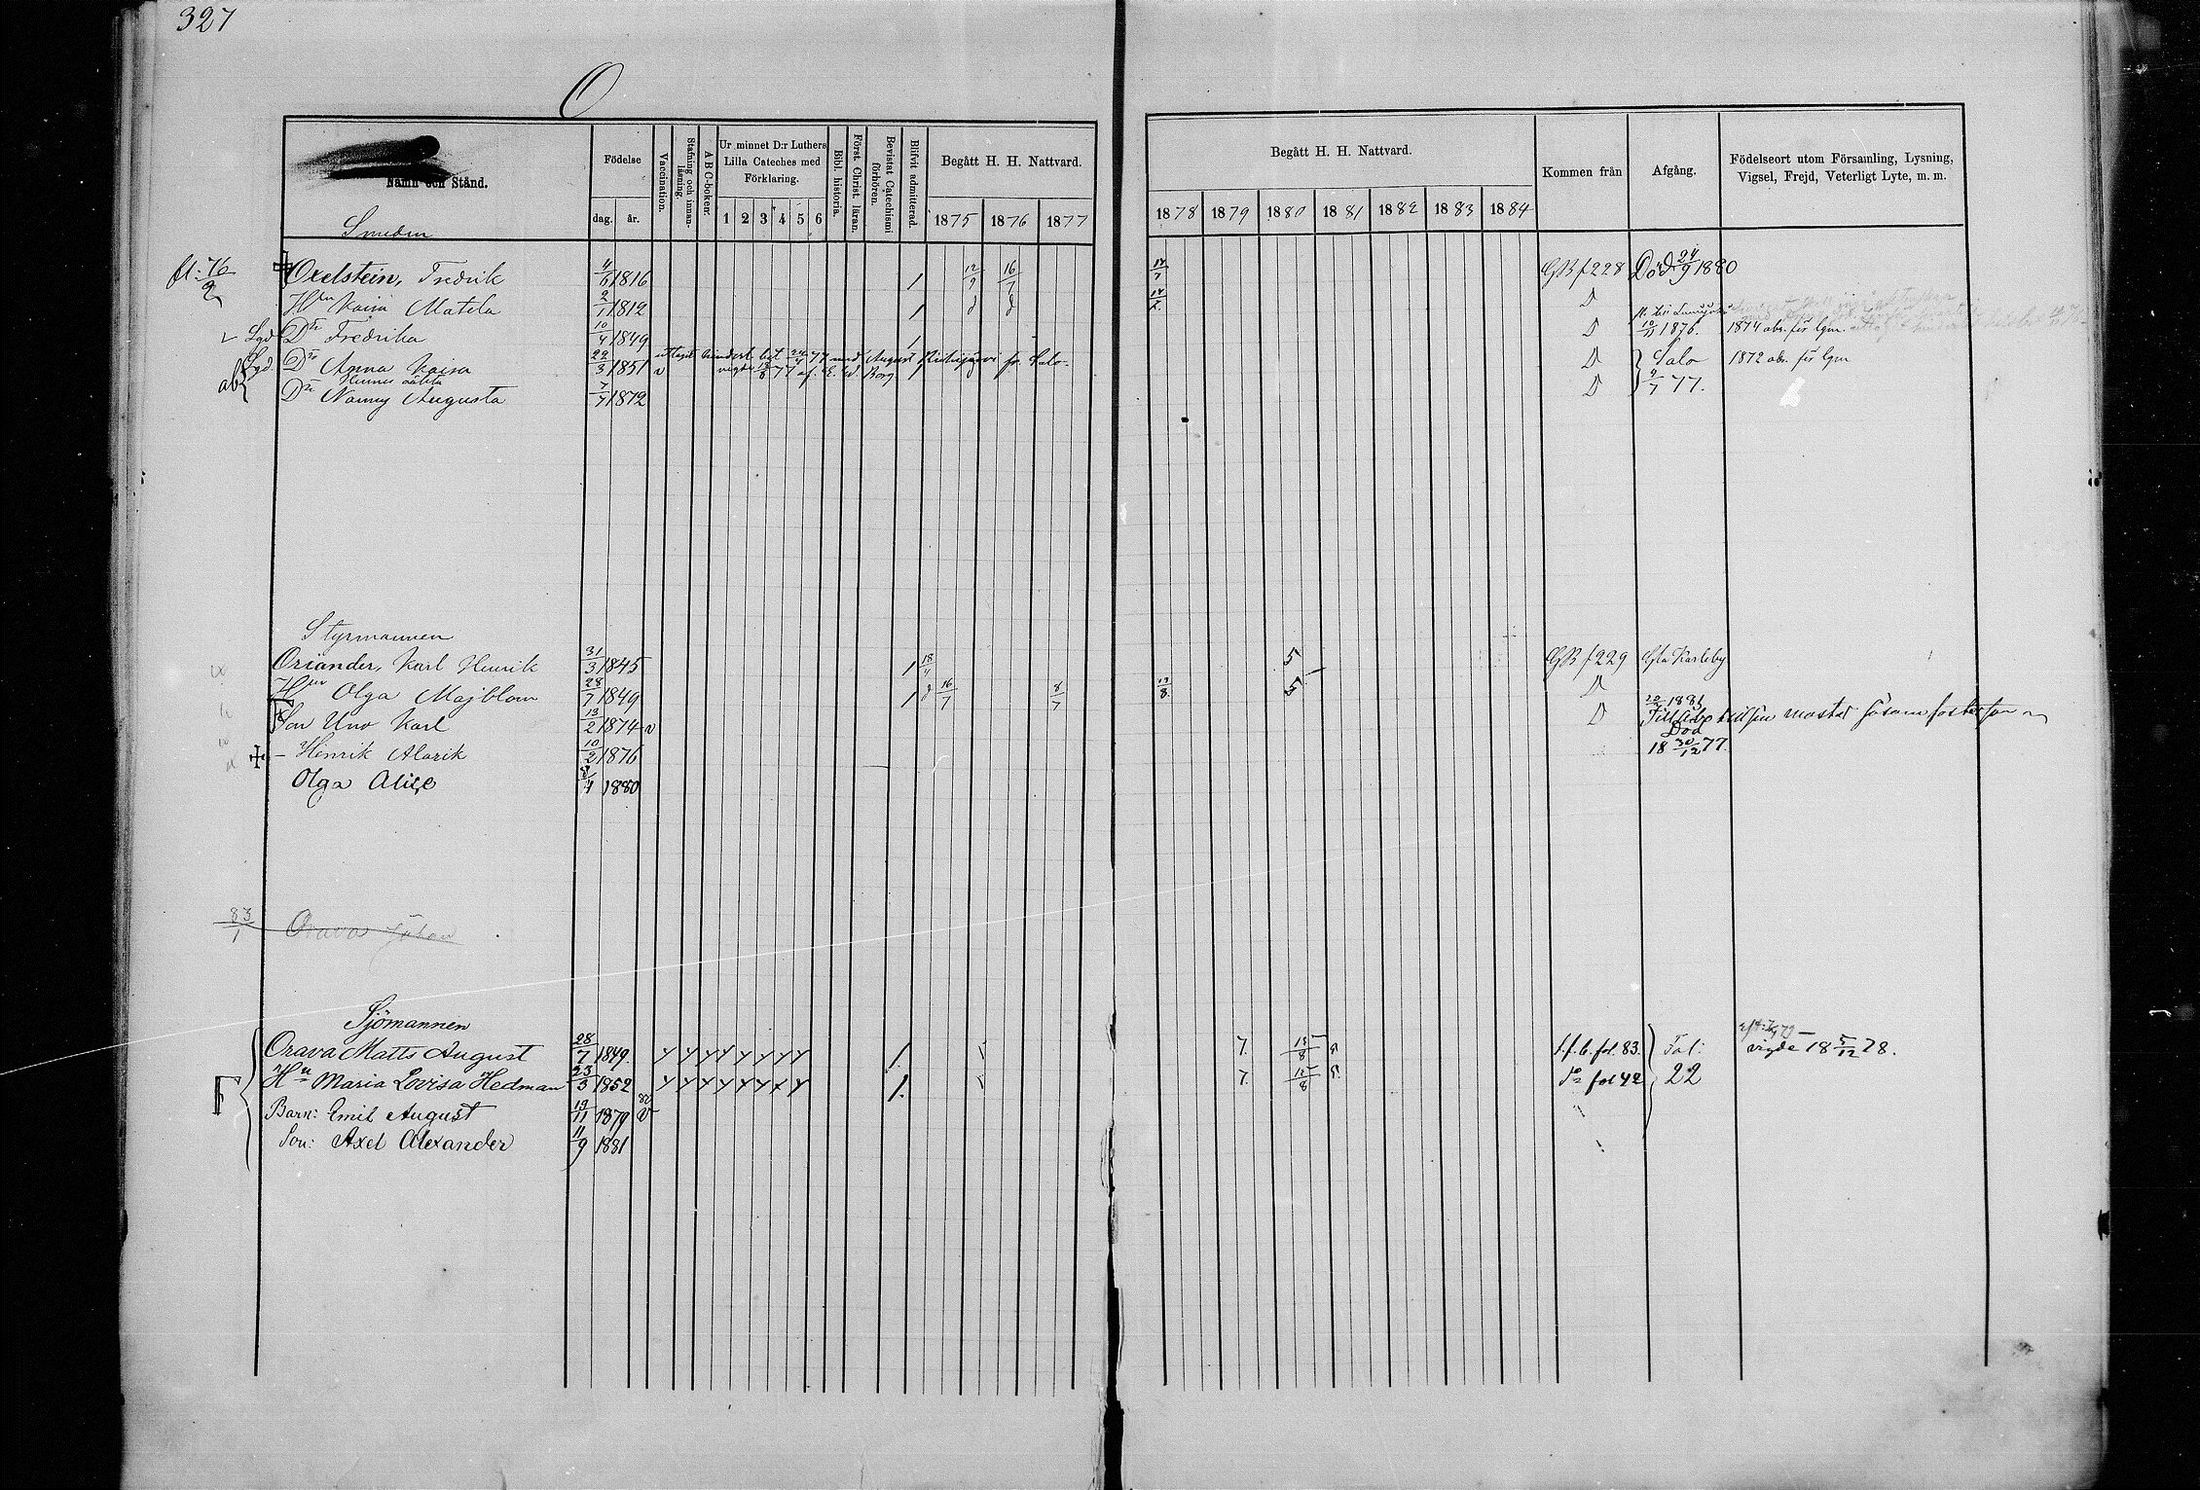 327
O
Namn och Stånd.
Födelse
dag. år.
Vaccination.
Stafning och innanläsning.
A B C-boken.
Ur minnet D:r Luthers Lilla Cateches med Förklaring.
1 2 3 4 5 6
Bibl. historia.
Först. Christ. läran.
Bevistat Catechismi förhören.
Blifvit admitterad.
Begått H. H. Nattvard.
1875 1876 1877
Begått H. H. Nattvard.
1878 1879 1880 1881 1882 1883 1884
Kommen från
Afgång.
Födelseort utom Församling, Lysning, Vigsel, Frejd, Veterligt Lyte, m. m.
Smeden
fl: 76/2 Oxelstein, Fredrik 4/6 1816 1 12/9 16/7 14/7 GB f 228 Död 24/9 1880
Hu Kaisa Matela 2/1 1812 1 D
Lgd Dr Fredrika 10/4 1849 1 D 10/11 1876. 1874 abs. för lgm.
Lgd Dr Anna Kaisa 22/3 1851 v D Salo 1872 abs. för lgm
Hennes oäkta
Dr Nanny Augusta 7/7 1872 D 9/7 77.
Styrmannen
Oriander, Karl Henrik 31/3 1845 1 18/4 5 GB f 229 Gla Karleby
Hu Olga Majblom 28/7 1849 1 16/7 8/7 13/8 5 D
Son Uno Karl 13/2 1874 v D 1881
Död
- Henrik Alarik 10/2 1876 18 30/12 77.
Olga Alice 4 1880
83/1 Orava Johan
Sjömannen
Orava Matts August 28/7 1849. 1. 7. 15/8 8 s.f.b. fol. 83. Fol: vigde 18 5/12 78.
Hu Maria Lovisa Hedman 23/3 1852 1. 7. 15/8 8. Do fol 42 22
Barn: Emil August 19/11 1879 v
Son: Axel Alexander 11/9 1881